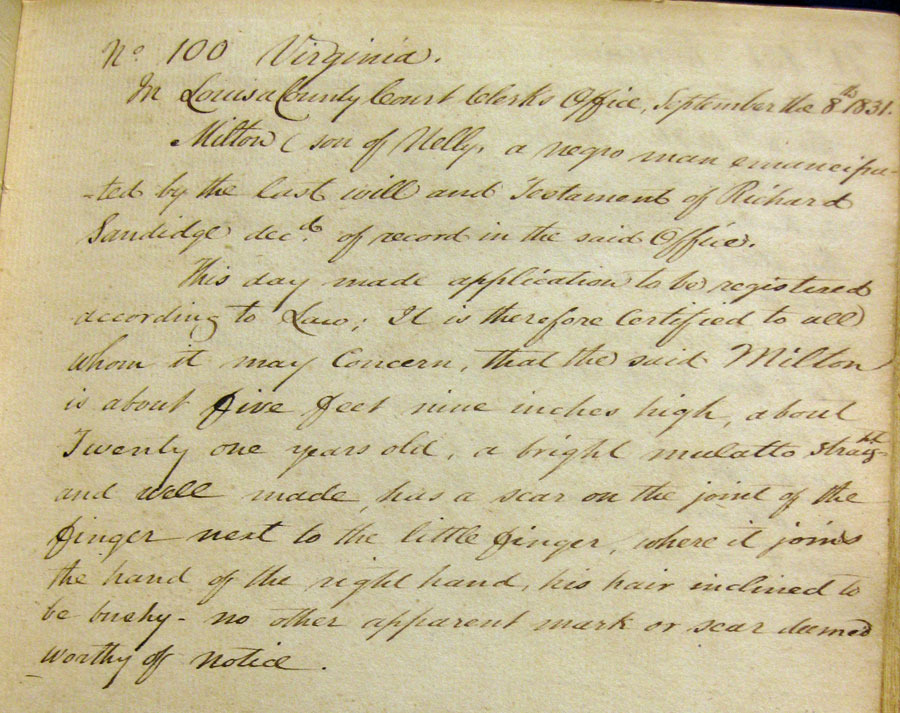 No. 100 Virginia.
In Louisa County Court Clerks Office, September the 8th 1831.
Milton (son of Nelly, a negro man emancipa-
-ted by the last will and Testament of Richard
Sandidge decd. of record in the said Office.
This day made application to be registered
according to Law; It is therefore Certified to all
whom it may Concern, that the said Milton
is about five feet nine inches high, about
Twenty one years old, a bright mulatto straight
and well made, has a scar on the joint of the
finger next to the little finger, where it joins
the hand of the right hand, his hair inclined to
be bushy - no other apparent mark or scar deemed
worthy of notice.